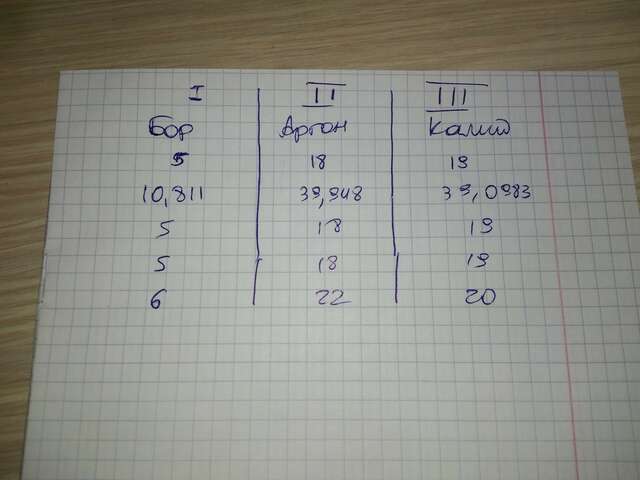 I II III
Бор Аргон Калий
5 18 19
10,811 39,948 39,0983
5 18 19
5 18 19
6 22 20